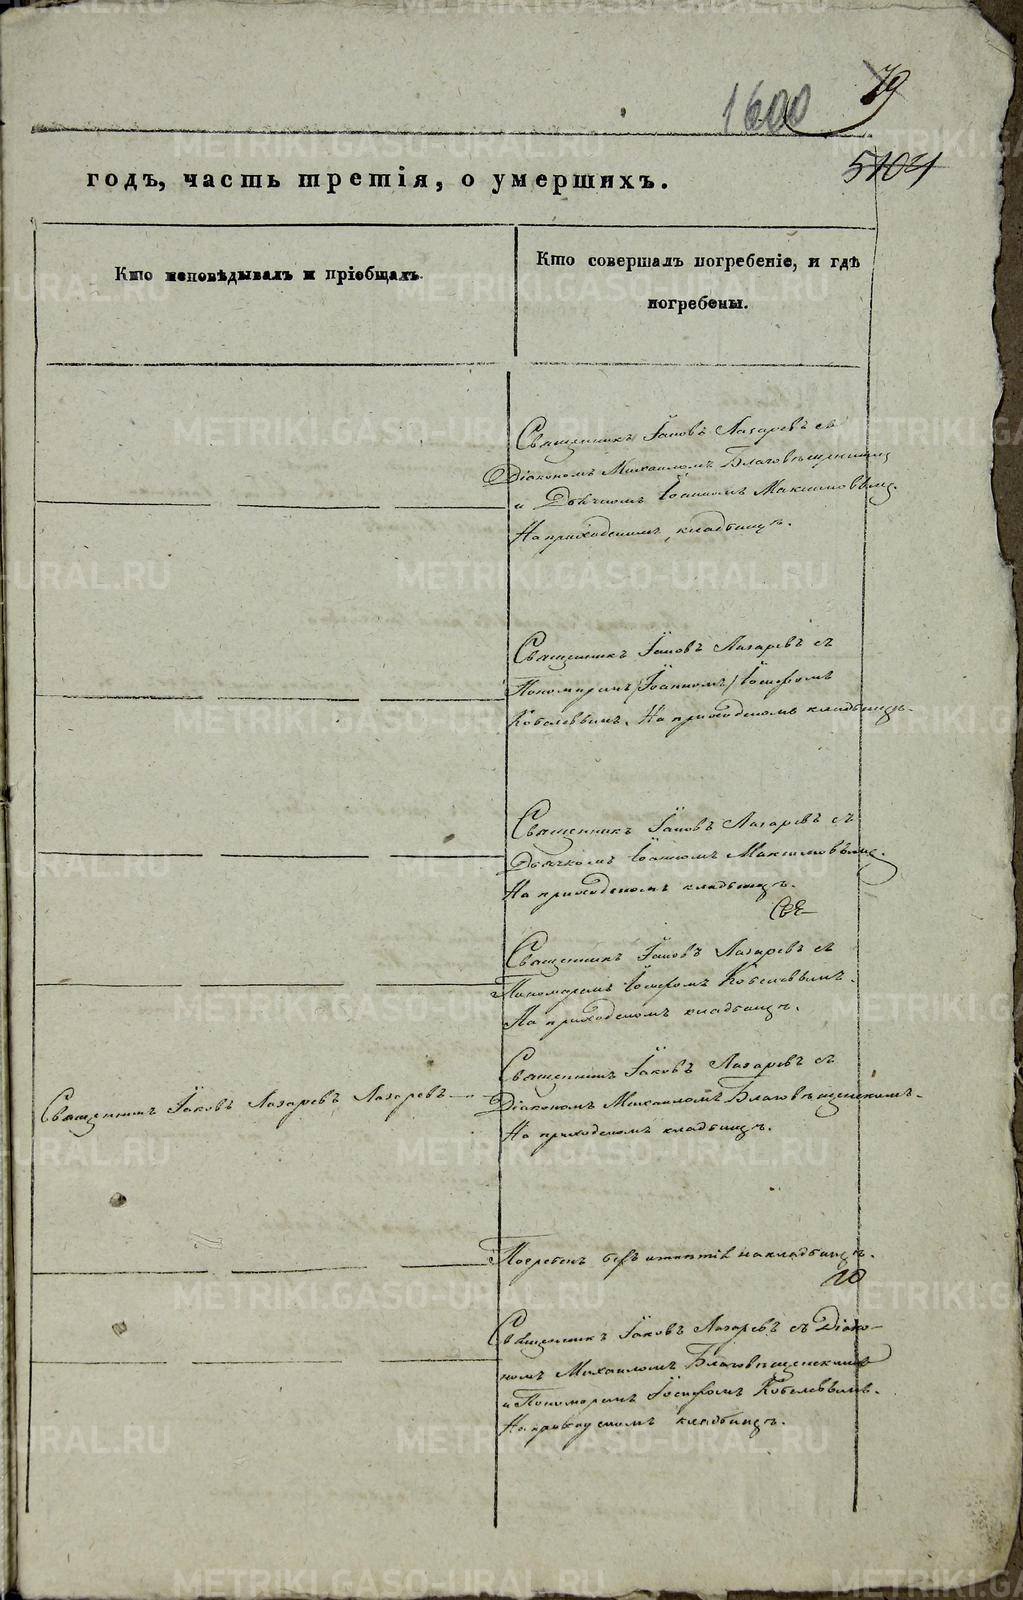 1600
79
5104
годъ, часть третія, о умершихъ.
Кто исповѣдывалъ и пріобщалъ.
Кто совершалъ погребеніе, и гдѣ
погребены.
Священникъ Іаковъ Лазаревъ съ
Діакономъ Михаиломъ Благовѣщенскимъ
и Дьячкомъ Іоанномъ Максимовымъ.
На приходскомъ кладбищѣ.
Священникъ Іаковъ Лазаревъ съ
Пономаремъ /Іоанномъ/ Іосифомъ
Кобелевымъ. На приходскомъ кладбищѣ.
Священникъ Іаковъ Лазаревъ съ
Дьячкомъ Іоанномъ Максимовымъ.
На приходскомъ кладбищѣ.
Священникъ Іаковъ Лазаревъ съ
Пономаремъ Іосифомъ Кобелевымъ.
На приходскомъ кладбищѣ.
Священникъ Іаковъ Лазаревъ Лазаревъ
Священникъ Іаковъ Лазаревъ съ
Діакономъ Михаиломъ Благовѣщенскимъ.
На приходскомъ кладбищѣ.
Погребенъ безъ отпѣтія на кладбищѣ.
Священникъ Іаковъ Лазаревъ съ Діако-
номъ Михаиломъ Благовѣщенскимъ
и Пономаремъ Іосифомъ Кобелевымъ.
На приходскомъ кладбищѣ.
METRIKI.GASO-URAL.RU